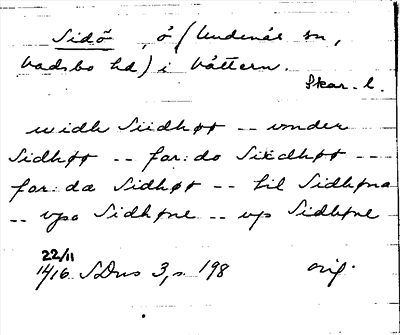 Sidö, ö (Undenäs sn,
Vadsbo hd) i Vättern.
Skar. l.
widh Siidhøø -- vnder
Sidhøø -- for: do Siidhøø --
for: da Sidhøø -- til Sidhøna
-- vpa Sidhøne -- vp Sidhøne
22/11
1416 SDns 3, s. 198 orig.